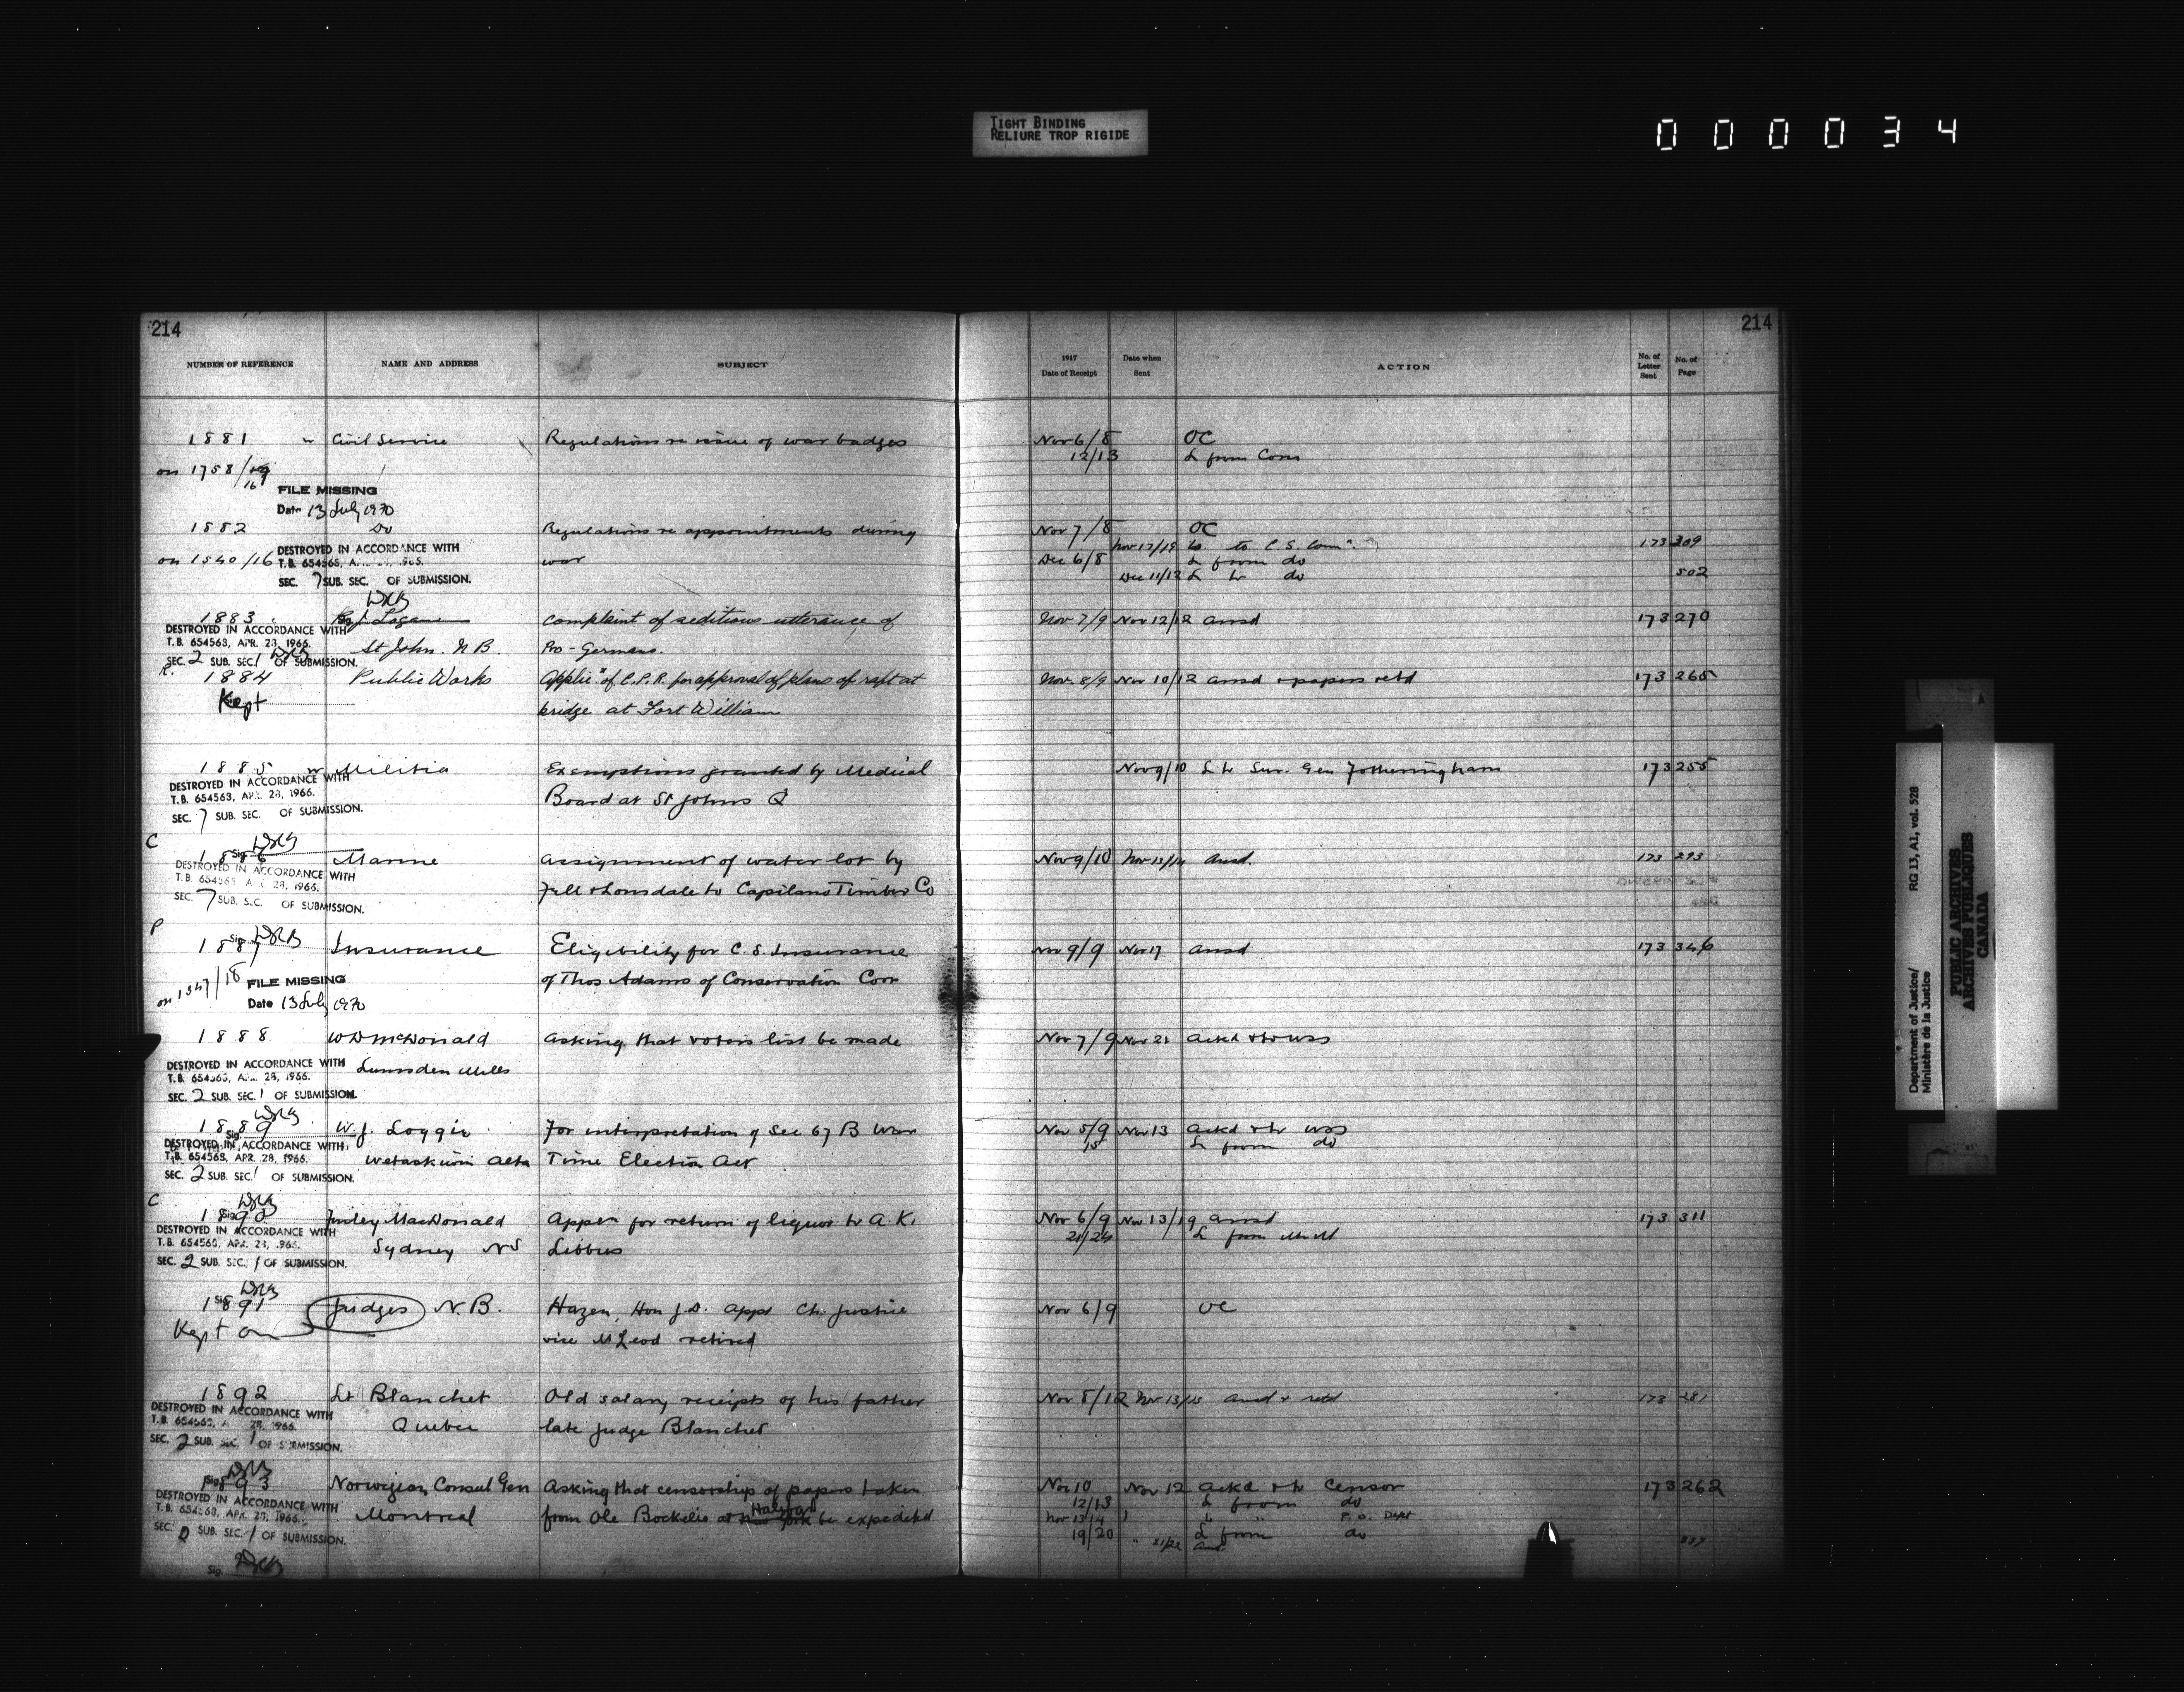 TIGHT BINDING
RELIURE TROP RIGIDE
000034
214
NUMBER OF REFERENCE NAME AND ADDRESS SUBJECT
1881 Civil Service Regulations re issue of war badges
on 1758/
FILE MISSING
Date 13 July 1970
1882 Do Regulations re appointments during
on 1540/16 DESTROYED IN ACCORDANCE WITH war
T.B. 654563,
SEC. 7 SUB. SEC. OF SUBMISSION.
1883 Logan Complaint of seditious utterance of
DESTROYED IN ACCORDANCE WITH
T.B. 654563, APR. 28, 1966. St John. N B. Pro-Germans.
SEC. 2 SUB. SEC. 1 OF SUBMISSION.
1884 Public Works Applicn of C.P.R. for approval of plans of raft at
Kept bridge at Fort William
1885 Militia Exemptions granted by Medical
DESTROYED IN ACCORDANCE WITH
T.B. 654563, APR. 28, 1966. Board at St Johns Q
SEC. 7 SUB. SEC. OF SUBMISSION.
C
1886 Marine Assignment of water lot by
DESTROYED IN ACCORDANCE WITH
T.B. 654563 APR. 28, 1966. Fell & Lonsdale to Capilano Timber Co
SEC. 7 SUB. SEC. OF SUBMISSION.
P
1887 Insurance Eligibility for C.S. Insurance
on 1347/18 FILE MISSING of Thos Adams of Conservation Com
Date 13 July 1970
1888 W D McDonald Asking that voters list be made
DESTROYED IN ACCORDANCE WITH Lumsden Mills
T.B. 654563, APR. 28, 1966.
SEC. 2 SUB. SEC. 1 OF SUBMISSION.
1889 W. J. Loggie For interpretation of Sec 67 B War
DESTROYED IN ACCORDANCE WITH
T.B. 654563, APR. 28, 1966. Wetaskiwin Alta Time Election Act
SEC. 2 SUB. SEC. 1 OF SUBMISSION.
C
1890 Finley MacDonald Appn for return of liquor to A. K.
DESTROYED IN ACCORDANCE WITH
T.B. 654563, APR. 28, 1966. Sydney NS Libbus
SEC. 2 SUB. SEC. 1 OF SUBMISSION.
1891 Judges N.B. Hazen, Hon J.D. appt Ch. Justice
Kept on vice McLeod retired
1892 Lt Blanchet Old salary receipts of his father
DESTROYED IN ACCORDANCE WITH
T.B. 654563, 28, 1966. Quebec late Judge Blanchet
SEC. 2 SUB. SEC. 1 OF SUBMISSION.
1893 Norwegian Consul Gen Asking that censorship of papers taken
DESTROYED IN ACCORDANCE WITH Halifax
T.B. 654563, APR. 28, 1966. Montreal from Ole Bockelie at New York be expedited
SEC. 2 SUB. SEC. 1 OF SUBMISSION.
Sig.
214
1917
Date of Receipt Date when Sent ACTION No. of Letter Sent No. of Page
Nov 6/8 OC
12/13 L from Com
Nov 7/8 OC
Nov 17/19 Lr. to C.S. Comn. 173 309
Dec 6/8 L from do
Dec 11/12 L to do 502
Nov 7/9 Nov 12/12 ansd 173 270
Nov. 8/9 Nov 10/12 ansd & papers retd 173 265
Nov 9/10 L to Sur. Gen Fotheringham 173 255
Nov 9/10 Nov 13/14 Ansd. 173 293
Nov 9/9 Nov 17 ansd 173 346
Nov 7/9 Nov 21 ackd & to WSS
Nov 5/9 Nov 13 ackd & to WSS
15 L from do
Nov 6/9 Nov 13/19 ansd 173 311
21/24 L from
Nov 6/9 OC
Nov 8/12 Nov 13/15 ansd & retd 173 281
Nov 10 Nov 12 ackd & to Censor 173 262
12/13 L from do
Nov 13/14 " " P.O. Dept
19/20 L from do
" 21/22 Ans.
RG 13, A1, vol. 528
Department of Justice/
Ministère de la Justice
PUBLIC ARCHIVES
ARCHIVES PUBLIQUES
CANADA